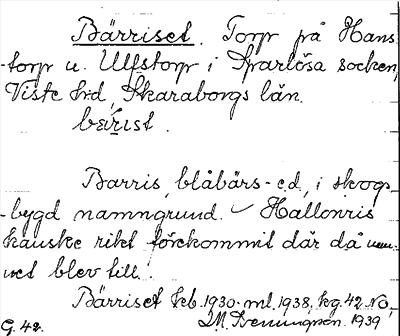 Bärriset. Torp på Hans
-torp u. Ulfstorp i Sparlösa socken,
Viste hd, Skaraborgs län.
Barris, blåbärs- e.d., i skogs
-bygd namngrund. Hallonris
kanske rikt förekommit där då nam-
net blev till.
Bärriset kb. 1930. ml. 1938, kg. 42 No,
G. 42. 1939